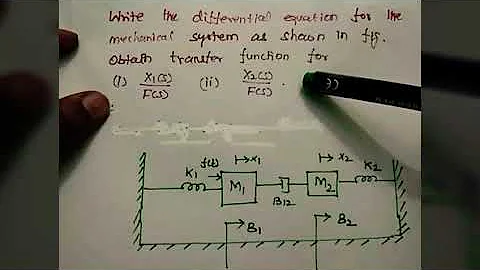 Write the differential equation for the
mechanical system as shown in fig.
Obtain transfer function for
(i) X1(s)/F(s) (ii) X2(s)/F(s) .
K1 f(t) →x1 →x2 K2
M1 M2
B12
B1 B2